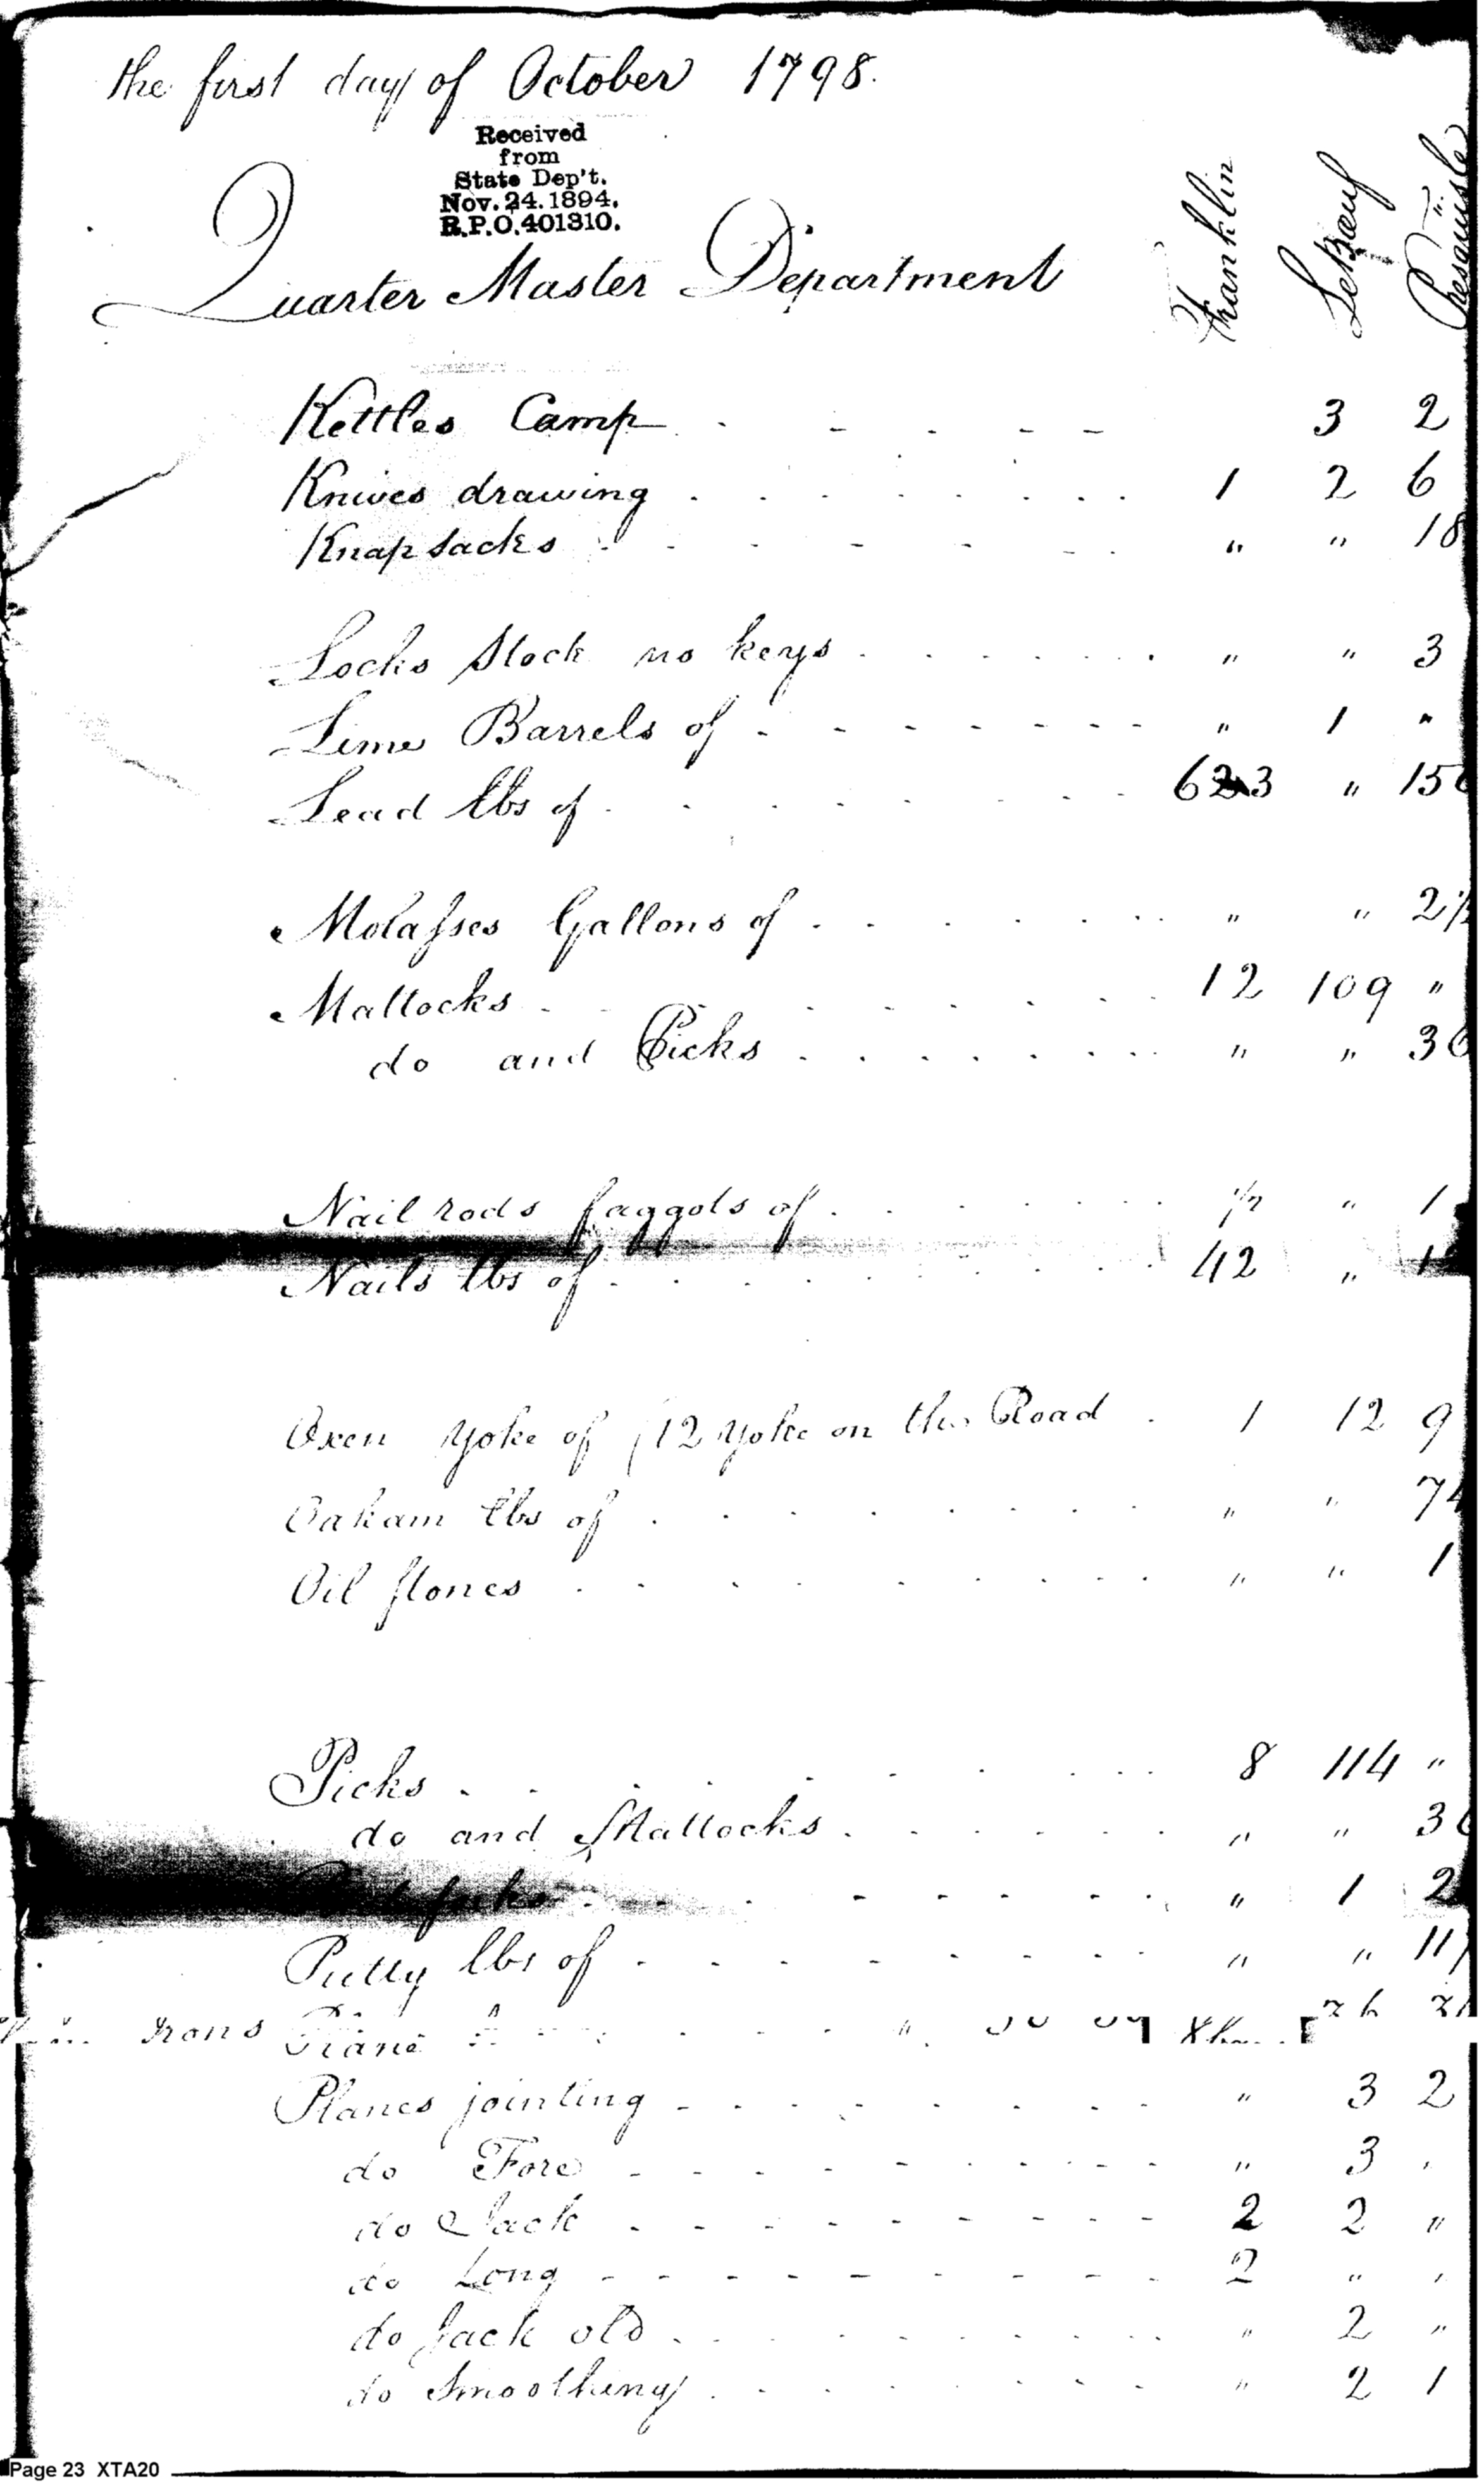 the first day of October 1798.
Received
from
State Dep't.
Nov. 24. 1894.
R.P.O. 401310.
Quarter Master Department
Franklin LeBœuf Presqu'isle
Kettles Camp . - - - - 3 2
Knives drawing . . . . . . . . 1 2 6
Knapsacks - - - - - - - " " 18
Locks Stock no keys . . . . . . . " " 3
Lime Barrels of - - - - - - - " 1 "
Lead lbs of . . . . . . . . 623 " 15
Molasses Gallons of . . . . . . . " " 2
Mattocks . . . . . . . . 12 109 "
do and Picks . . . . . . . " " 3
Nail rods faggots of . . . . . . 1/2 " 1
Nails lbs of . . . . . . . . 42 "
Oxen Yoke of (12 Yoke on the Road . 1 12 9
Oakam lbs of . . . . . . . . " " 7
Oil stones . . . . . . . . " " 1
Picks . . . . . . . . . 8 114 "
do and Mattocks . . . . . . " " 3
- - - - - - " 1 2
Putty lbs of - - - - - - - " " 11
Irons Plane
Planes jointing - - - - - - - " 3 2
do Fore - - - - - - - - " 3 "
do Jack - - - - - - - - 2 2 "
do Long - - - - - - - - 2 " "
do Jack old . . . . . . . . " 2 "
do Smoothing . . . . . . . . " 2 1
Page 23 XTA20